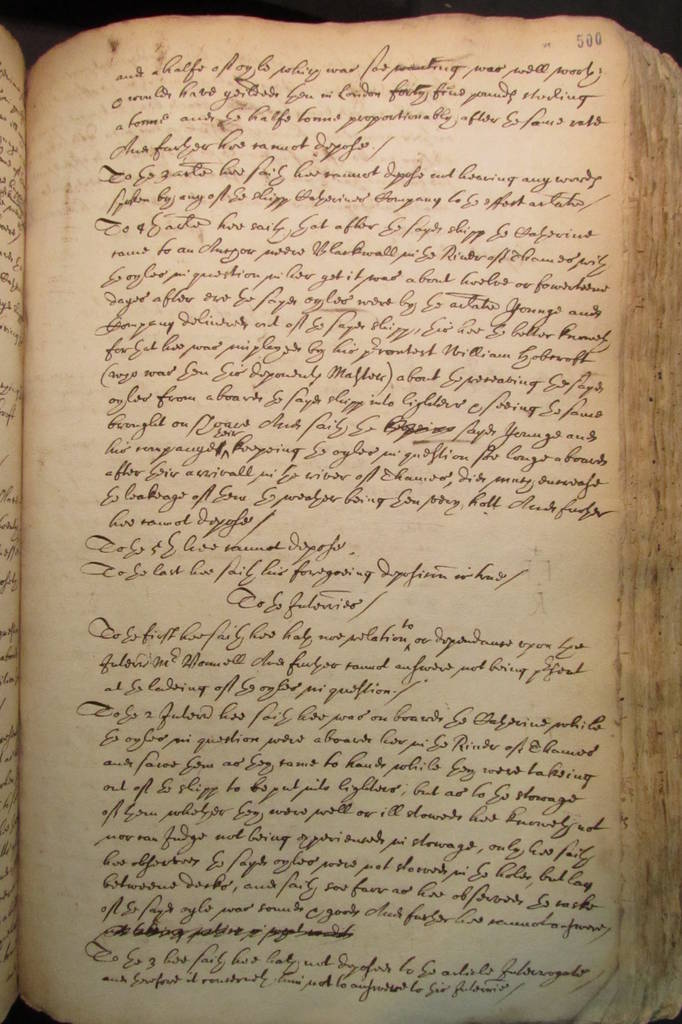 500
and a halfe of oyle which was soe wanting was well worth,
& would have yeilded then in London forty five pounds sterling
a tonne and the halfe tonne proportionably after the same rate
And further hee cannot depose./
To the 3 arle hee saith hee cannot depose not hearing any words
spoken by any of the shipp Catherines Company to the effect arlate/
To 4th arle hee saith, that after the sayd shipp the Catherine
came to an Anchor neere Blackwall in the River of Thames with
the oyles in question in her yet it was about twelve or fowerteene
dayes after ere the sayd oyles were by the arlate Younge and
Company delivered out of the sayd shipp, this hee the better knoweth
for that hee was imployed by his Contest William
(who was then this deponents Master) about the receaving the sayd
oyles from aboard the sayd shipp into lighters & seeing the same
brought on shoare And saith the sayd Younge and
his companyes their keepeing the oyles in question soe longe aboard
after their arrivall in the river of Thames did much encrease
the leakeage of them the weather being then very hott And further
hee cannot depose/
To the 5th hee cannot depose.
To the last hee saith his foregoeing deposition is true/
To the Interries/
To the first hee saith hee hath noe relation to or dependance upon the
Interr Mr Vannell And further cannot answere not being present
at the ladeing of the oyles in question./
To the 2 Interr hee saith hee was on board the Catherine while
the oyles in question were aboard her in the River of Thames
and sawe them as they came to hand while they were takeing
out of the shipp to be put into lighters, but as to the stowage
of them whether they were well or ill stowed hee knoweth not
nor can Judge not being experienced in stowage, only hee saith
hee observed the sayd oyles were not stowed in the hold, but lay
betweene decks, and saith soe farr as hee observed the caske
of the sayd oyle was sound & good And further hee cannot answere/
To the 3 hee saith hee hath not deposed to the article Interrogate
and therefore it concerneth him not to answere to this Interrie/